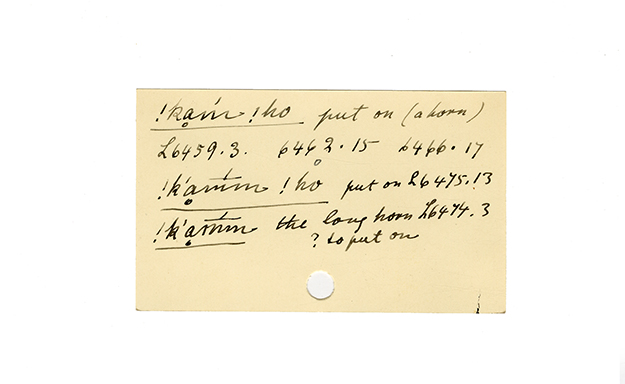 !kạm̄ !ho put on (a horn)
L6459.3. 6462.15 6466.17
!k'ạm̄m !họ put on L6475.13
!k'ạm̄m the long horn L6474.3
? to put on